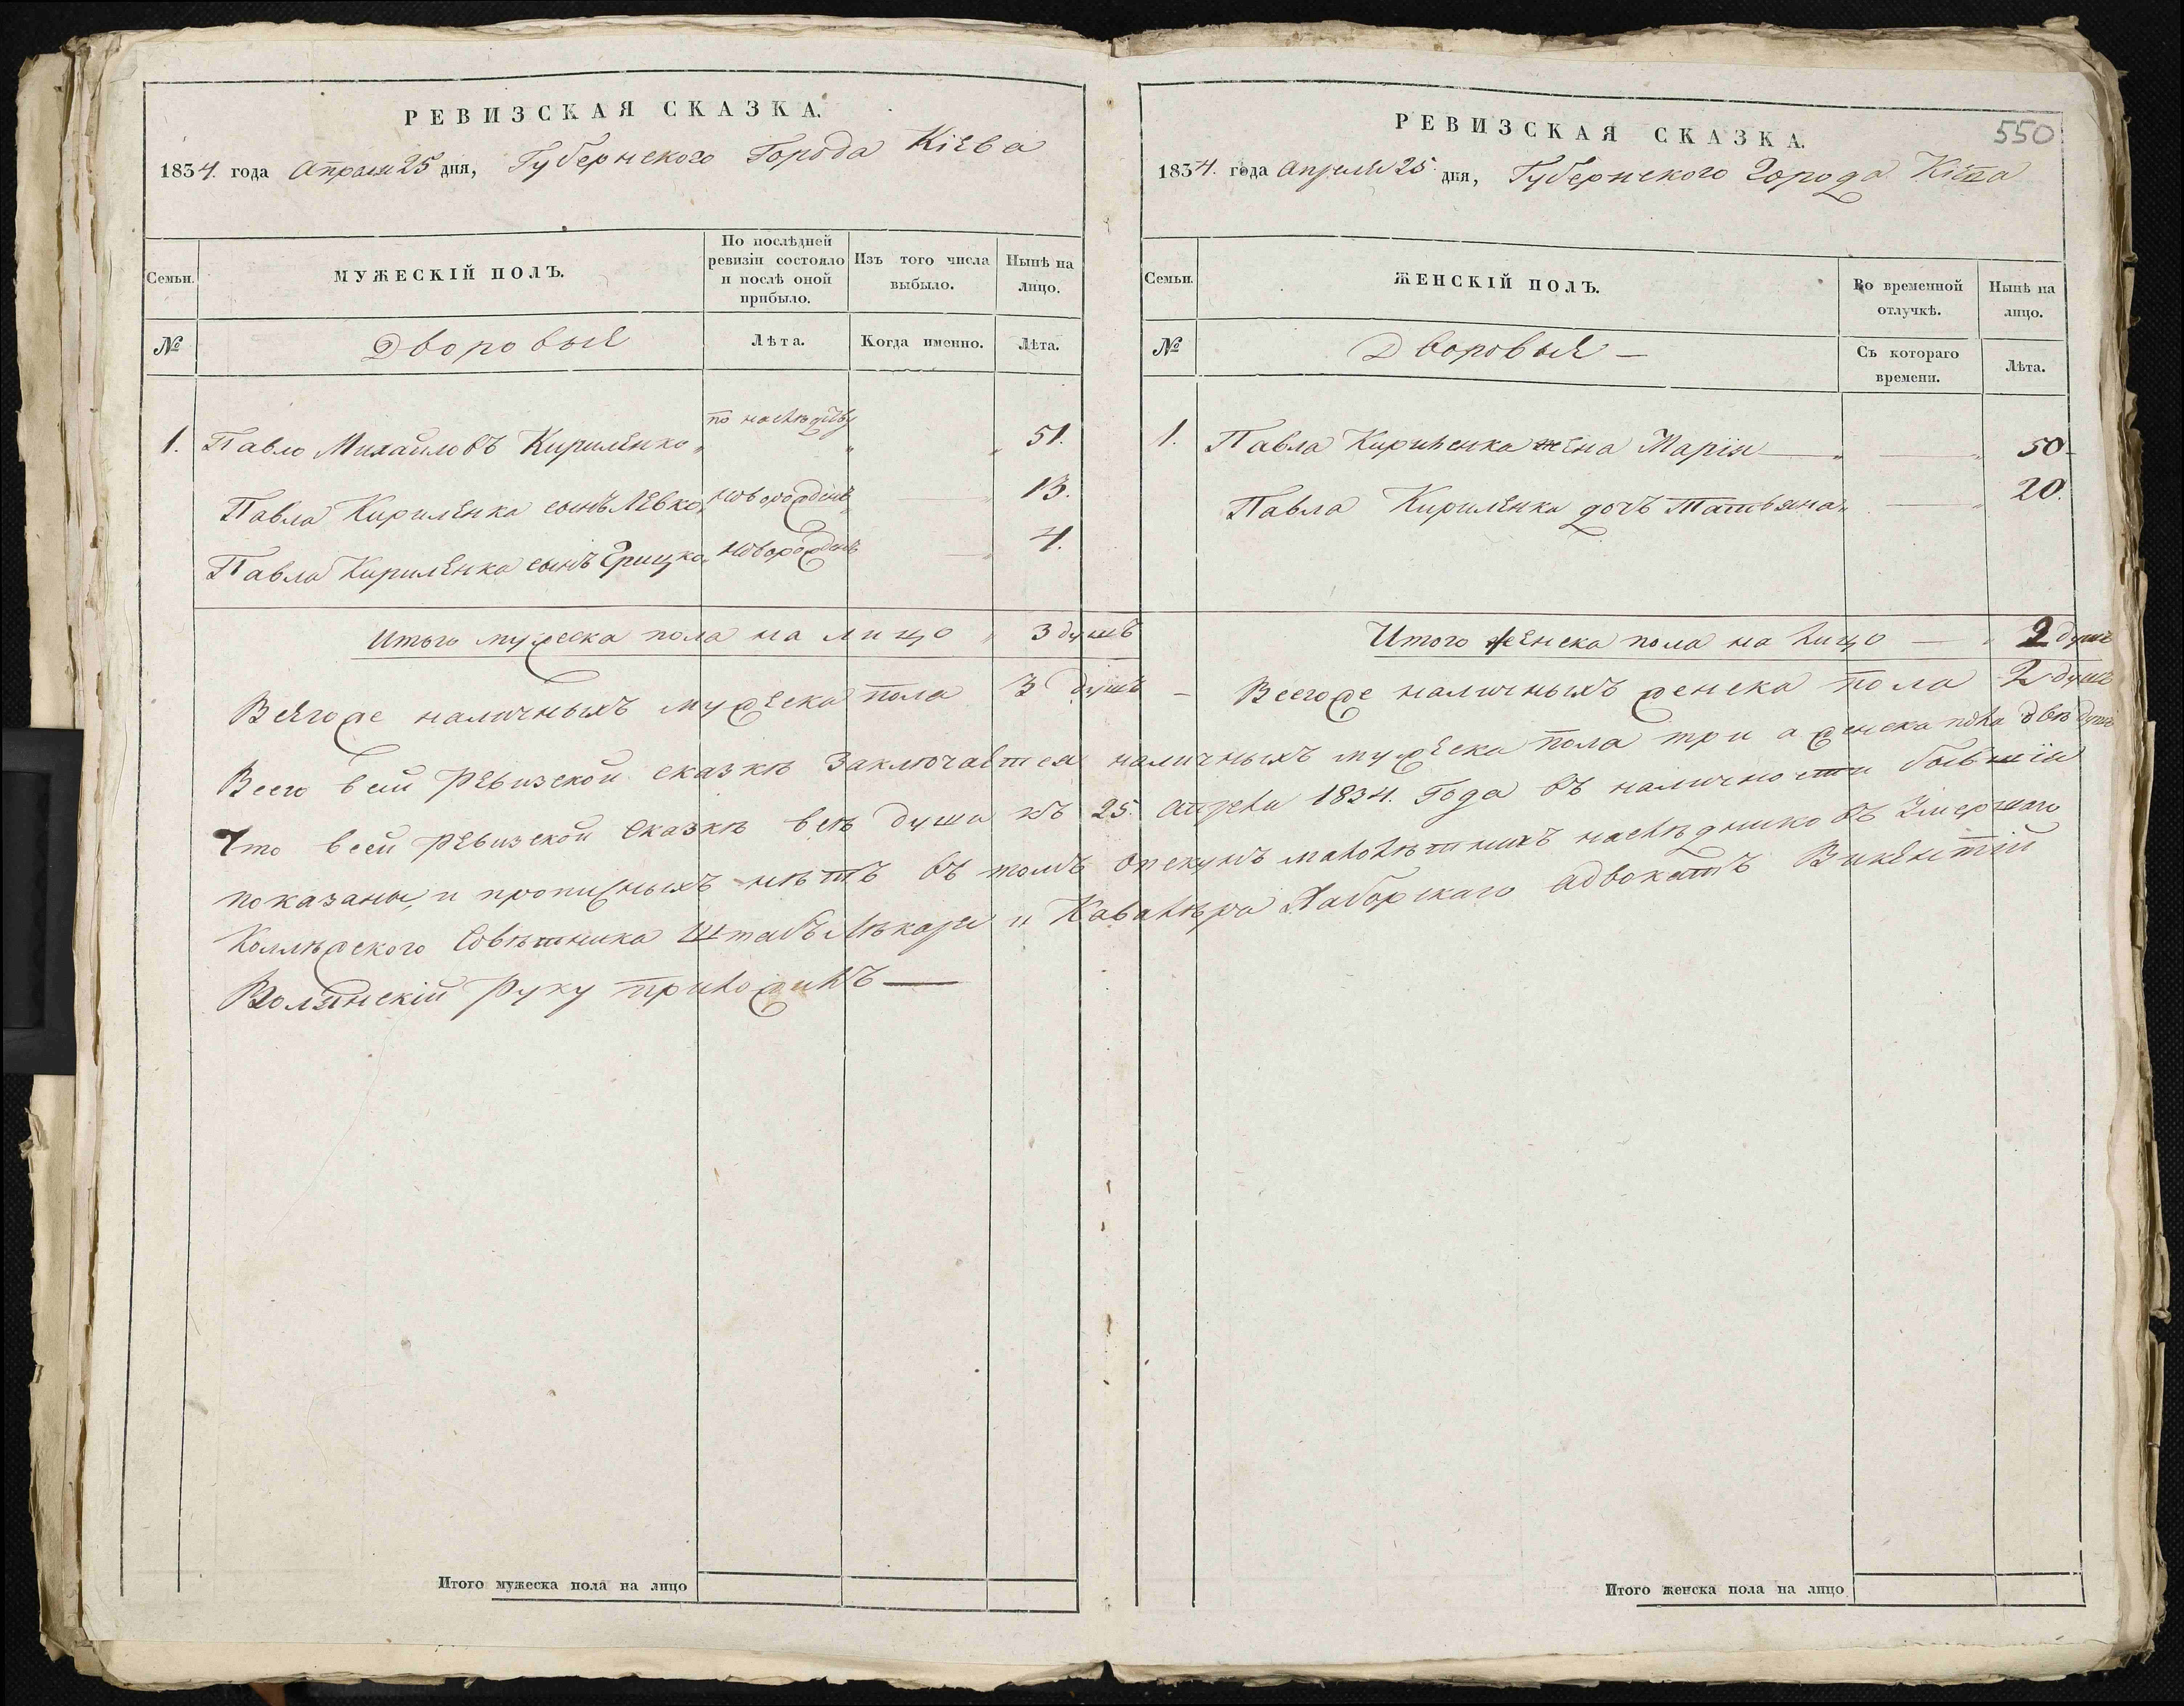 РЕВИЗСКАЯ СКАЗКА.
1834. года Апреля 25 дня, Губернского Города Кіева
Семьи.
МУЖЕСКІЙ ПОЛЪ.
По послѣдней ревизіи состояло и послѣ оной прибыло.
Изъ того числа выбыло.
Нынѣ на лицо.
№
Дворовые
Лѣта.
Когда именно.
Лѣта.
по наслѣдству
1. Павло Михайловъ Кириленко 51.
Павла Кириленка сынъ Левко новорожденъ 13.
Павла Кириленка сынъ Грицко новорожденъ 4.
Итого мужеска пола на лицо 3 душъ
Всегоже наличныхъ мужеска пола 3 душъ
РЕВИЗСКАЯ СКАЗКА.
550
1834. года Апреля 25. дня, Губернского Города Кіева
Семьи.
ЖЕНСКІЙ ПОЛЪ.
Во временной отлучкѣ.
Нынѣ на лицо.
№
Дворовые
Съ котораго времени.
Лѣта.
1. Павла Кириленка жена Марія 50
Павла Кириленка дочъ Татьяна 20.
Итого женска пола на лицо 2 душъ
Всегоже наличныхъ женска пола 2 душъ
Всего всей Ревизской сказкѣ Заключается наличныхъ мужеска пола три а женска пола двѣ душъ
Что всей Ревизской Сказкѣ всѣ душа къ 25. апреля 1834. Года въ наличности бывшія
показаны, и прописныхъ нѣтъ въ томъ Опекунъ малолѣтнихъ наслѣдниковъ Умершаго
Коллѣжского Совѣтника Штабъ Лѣкаря и Кавалѣра Яаборскаго Адвокатъ Викентій
Волянскій Руку приложилъ
Итого мужеска пола на лицо
Итого женска пола на лицо